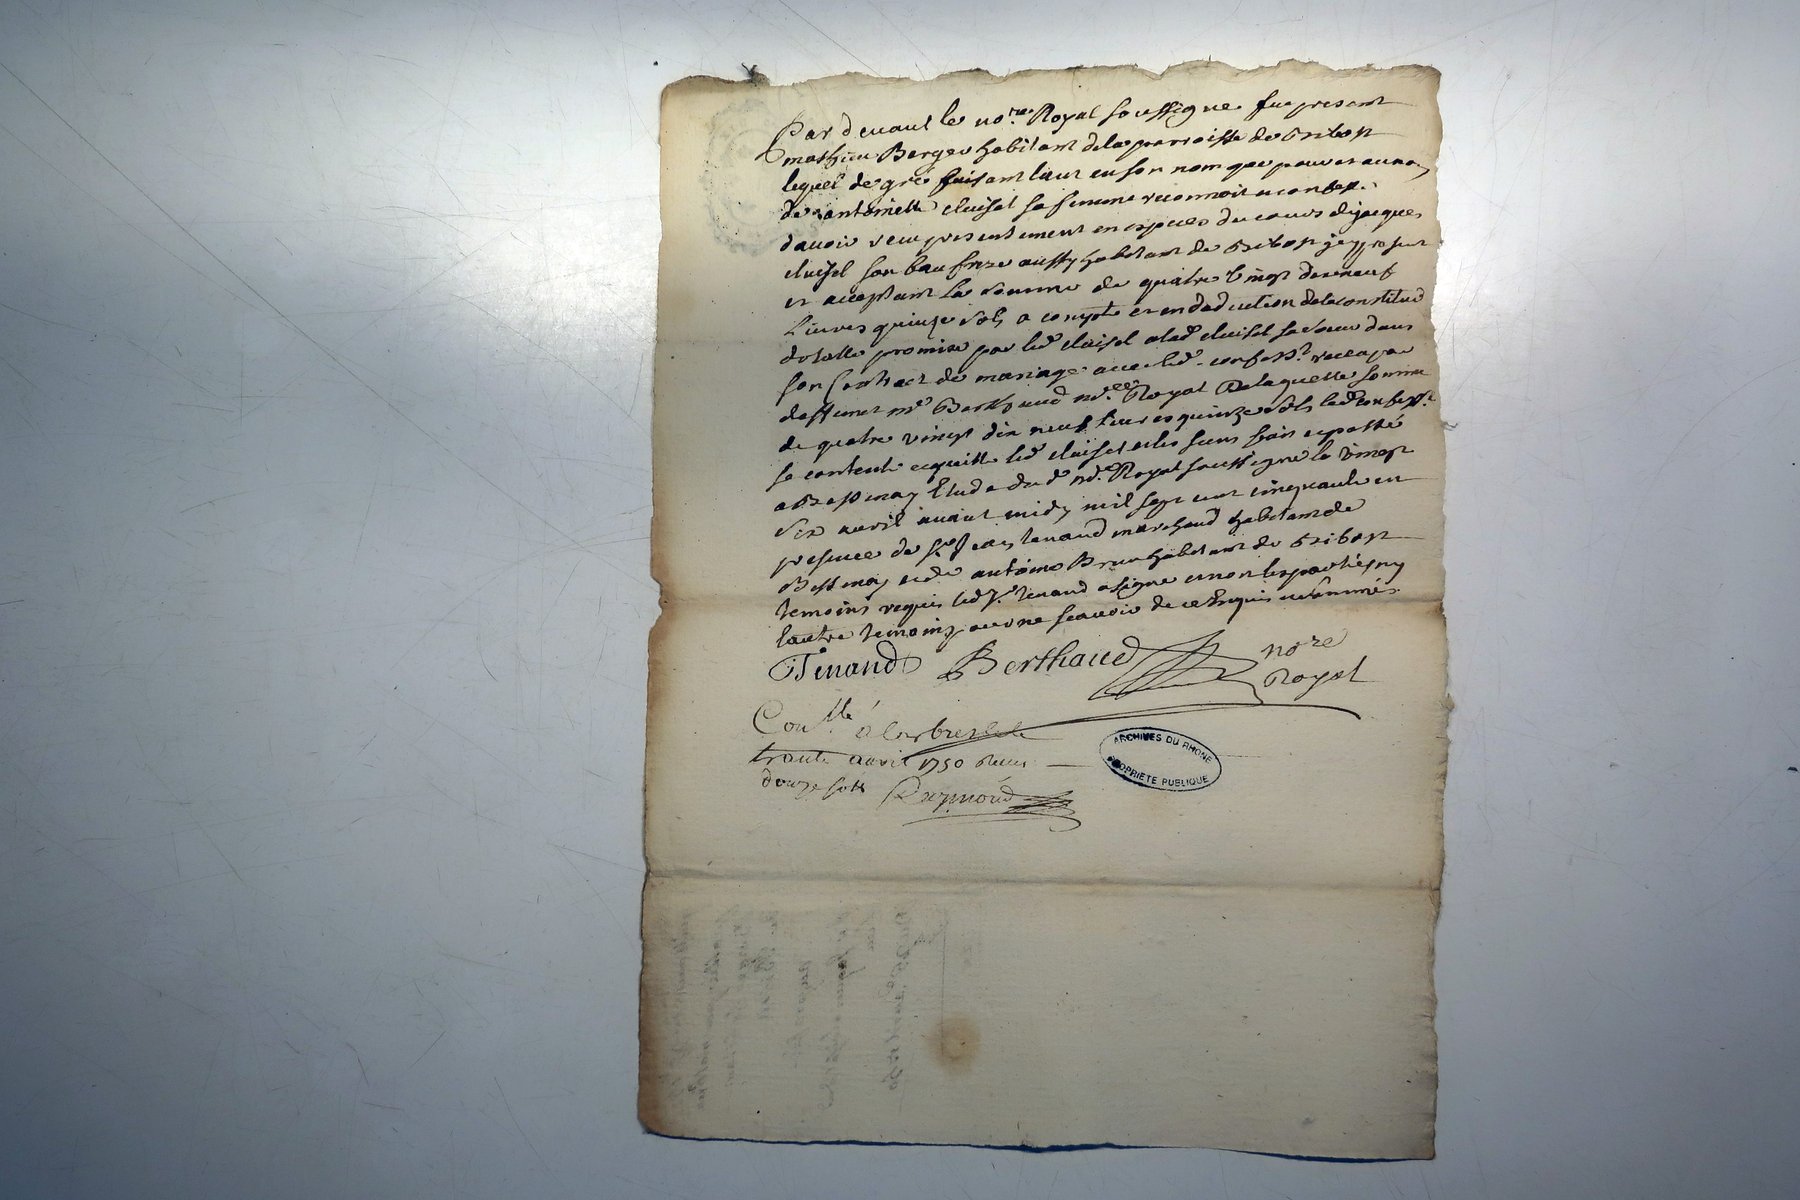 Par devant le no.re Royal soussigné fut present
mathieu Berger habitant dela parroisse de Bibost
lequel de gré faisant tant en son nom que pour et au nom
de antoinette cluisel sa femme reconnoit et confesse
davoir receu presentement en especes du cours de jacques
cluisel son beau frere aussy habitant de Bibost icy present
et acceptant la somme de quatre vingt dix neuf
Livres quinze sols a compte et en deduction dela constitution
dotalle promise par led cluisel alad cluisel sa soeur dans
son Contract de mariage avec led. confess.t receu par
deffunt me Berthaud no.re Royal De laquelle somme
de quatre vingt dix neuf livres quinze sols led confess.t
se contente et quitte led cluisel et les siens fait et passé
a Bessenay Etude dud no.re Royal soussigné le vingt
six avril avant midy mil sept cent cinquante en
presence de sr Jean tenand marchand habitant de
Bessenay et de antoine Brun habitant de Bibost
temoins requis led sr. tenand a signé et non les parties ny
lautre temoins pour ne scavoir de ce Enquis et sommés
Tenand Berthaud no.re
Royal
Con.lle à larbresle le
trante avril 1750 Receu
douze sols Raymond
ARCHIVES DU RHONE
PROPRIETE PUBLIQUE